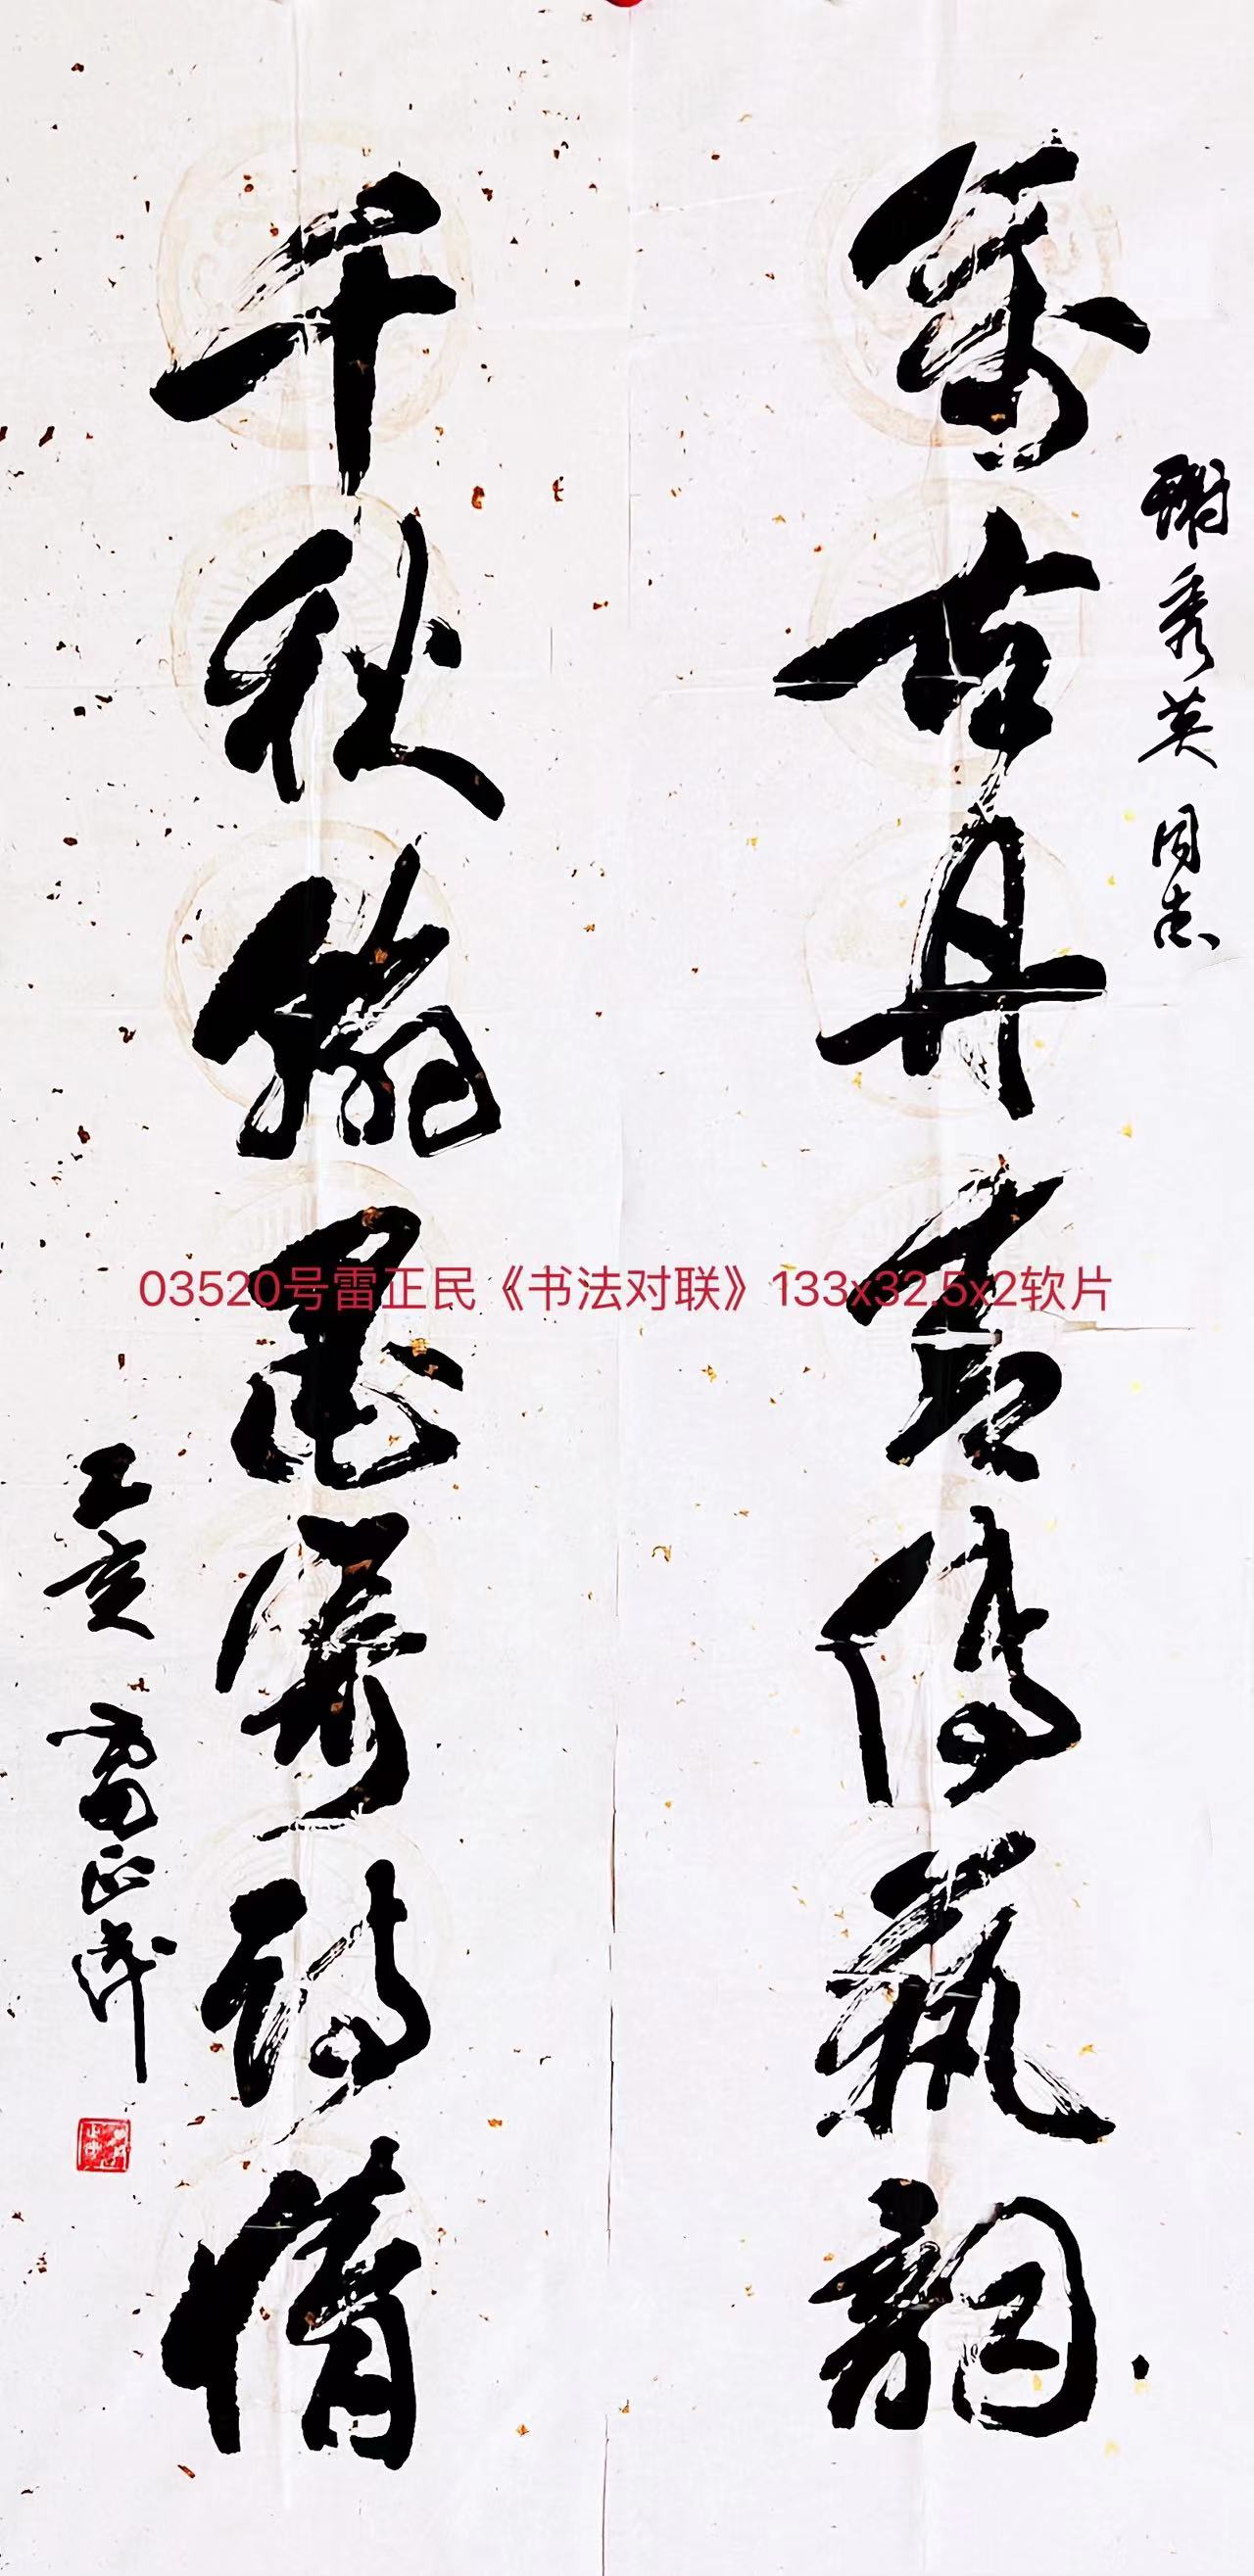 谢秀英同志
萬古丹青傳藝韻
千秋翰墨寄詩情
乙亥 雷正民
03520号雷正民《书法对联》133x32.5x2软片